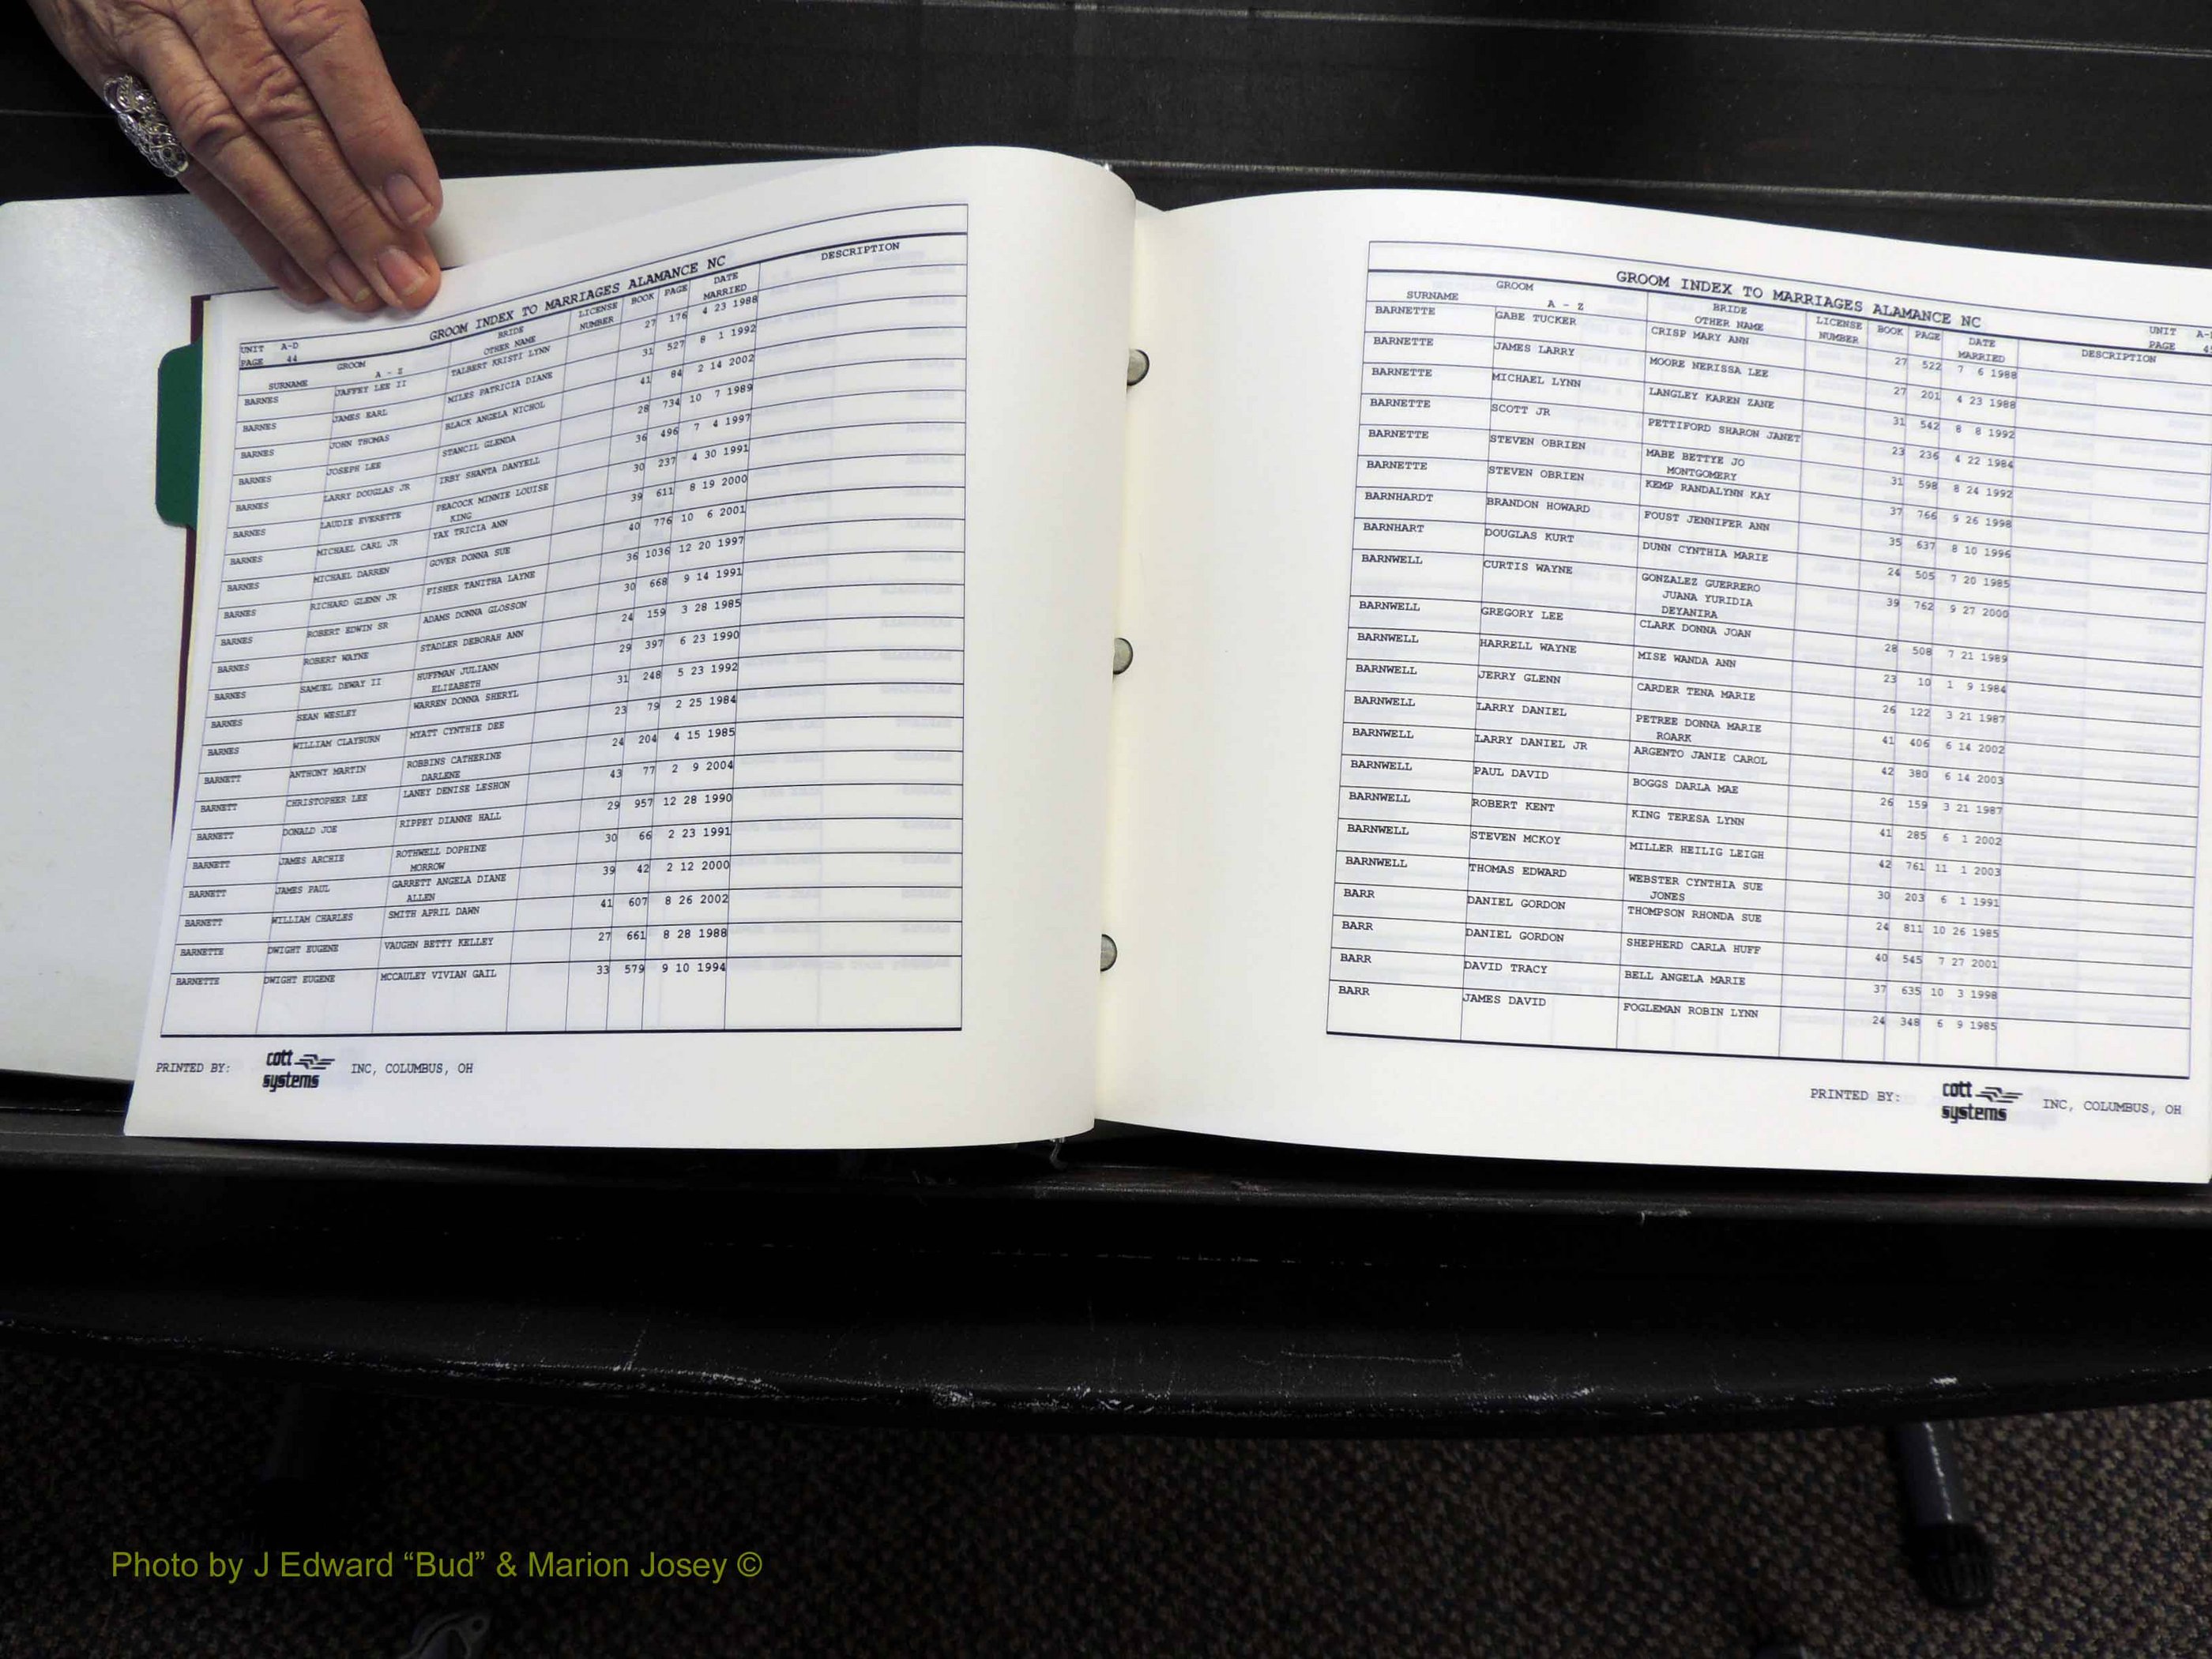 UNIT A-D
PAGE 44
GROOM INDEX TO MARRIAGES ALAMANCE NC
SURNAME GROOM A - Z BRIDE OTHER NAME LICENSE NUMBER BOOK PAGE DATE MARRIED DESCRIPTION
BARNES JAFFEY LEE II TALBERT KRISTI LYNN 27 176 4 23 1988
BARNES JAMES EARL MILES PATRICIA DIANE 31 527 8 1 1992
BARNES JOHN THOMAS BLACK ANGELA NICHOL 41 84 2 14 2002
BARNES JOSEPH LEE STANCIL GLENDA 28 734 10 7 1989
BARNES LARRY DOUGLAS JR IRBY SHANTA DANYELL 36 496 7 4 1997
BARNES LAUDIE EVERETTE PEACOCK MINNIE LOUISE 30 237 4 30 1991
KING
BARNES MICHAEL CARL JR YAX TRICIA ANN 39 611 8 19 2000
BARNES MICHAEL DARREN GOVER DONNA SUE 40 776 10 6 2001
BARNES RICHARD GLENN JR FISHER TANITHA LAYNE 36 1036 12 20 1997
BARNES ROBERT EDWIN SR ADAMS DONNA GLOSSON 30 668 9 14 1991
BARNES ROBERT WAYNE STADLER DEBORAH ANN 24 159 3 28 1985
BARNES SAMUEL DEWAY II HUFFMAN JULIANN 29 397 6 23 1990
ELIZABETH
BARNES SEAN WESLEY WARREN DONNA SHERYL 31 248 5 23 1992
BARNES WILLIAM CLAYBURN MYATT CYNTHIE DEE 23 79 2 25 1984
BARNETT ANTHONY MARTIN ROBBINS CATHERINE 24 204 4 15 1985
DARLENE
BARNETT CHRISTOPHER LEE LANEY DENISE LESHON 43 77 2 9 2004
BARNETT DONALD JOE RIPPEY DIANNE HALL 29 957 12 28 1990
BARNETT JAMES ARCHIE ROTHWELL DOPHINE 30 66 2 23 1991
MORROW
BARNETT JAMES PAUL GARRETT ANGELA DIANE 39 42 2 12 2000
ALLEN
BARNETT WILLIAM CHARLES SMITH APRIL DAWN 41 607 8 26 2002
BARNETTE DWIGHT EUGENE VAUGHN BETTY KELLEY 27 661 8 28 1988
BARNETTE DWIGHT EUGENE MCCAULEY VIVIAN GAIL 33 579 9 10 1994
PRINTED BY: cott systems INC, COLUMBUS, OH
GROOM INDEX TO MARRIAGES ALAMANCE NC
UNIT
PAGE
SURNAME GROOM A - Z BRIDE OTHER NAME LICENSE NUMBER BOOK PAGE DATE MARRIED DESCRIPTION
BARNETTE GABE TUCKER CRISP MARY ANN 27 522 7 6 1988
BARNETTE JAMES LARRY MOORE NERISSA LEE 27 201 4 23 1988
BARNETTE MICHAEL LYNN LANGLEY KAREN ZANE 31 542 8 8 1992
BARNETTE SCOTT JR PETTIFORD SHARON JANET 23 236 4 22 1984
BARNETTE STEVEN OBRIEN MABE BETTYE JO 31 598 8 24 1992
MONTGOMERY
BARNETTE STEVEN OBRIEN KEMP RANDALYNN KAY 37 766 9 26 1998
BARNHARDT BRANDON HOWARD FOUST JENNIFER ANN 35 637 8 10 1996
BARNHART DOUGLAS KURT DUNN CYNTHIA MARIE 24 505 7 20 1985
BARNWELL CURTIS WAYNE GONZALEZ GUERRERO 39 762 9 27 2000
JUANA YURIDIA
DEYANIRA
BARNWELL GREGORY LEE CLARK DONNA JOAN 28 508 7 21 1989
BARNWELL HARRELL WAYNE MISE WANDA ANN 23 10 1 9 1984
BARNWELL JERRY GLENN CARDER TENA MARIE 26 122 3 21 1987
BARNWELL LARRY DANIEL PETREE DONNA MARIE 41 406 6 14 2002
ROARK
BARNWELL LARRY DANIEL JR ARGENTO JANIE CAROL 42 380 6 14 2003
BARNWELL PAUL DAVID BOGGS DARLA MAE 26 159 3 21 1987
BARNWELL ROBERT KENT KING TERESA LYNN 41 285 6 1 2002
BARNWELL STEVEN MCKOY MILLER HEILIG LEIGH 42 761 11 1 2003
BARNWELL THOMAS EDWARD WEBSTER CYNTHIA SUE 30 203 6 1 1991
JONES
BARR DANIEL GORDON THOMPSON RHONDA SUE 24 811 10 26 1985
BARR DANIEL GORDON SHEPHERD CARLA HUFF 40 545 7 27 2001
BARR DAVID TRACY BELL ANGELA MARIE 37 635 10 3 1998
BARR JAMES DAVID FOGLEMAN ROBIN LYNN 24 348 6 9 1985
PRINTED BY: cott systems INC, COLUMBUS, OH
Photo by J Edward “Bud” & Marion Josey ©